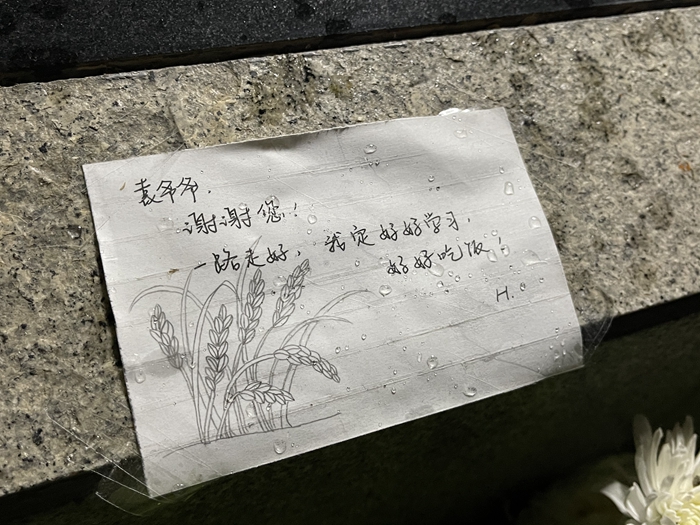 袁爷爷，
谢谢您！
一路走好，我定好好学习，
好好吃饭！
H.